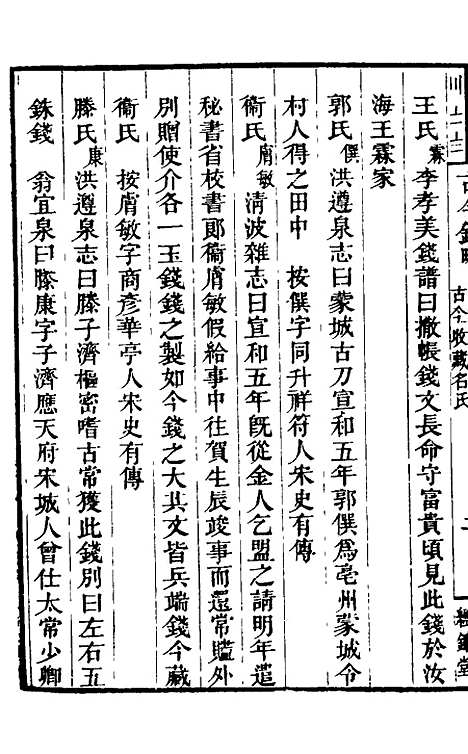 古今收藏名氏
王氏霖 李孝美錢譜曰撒帳錢文長命守富貴頃見此錢於汝
海王霖家
郭氏僎 洪遵泉志曰蒙城古刀宣和五年郭僎爲亳州蒙城令
村人得之田中 按僎字同升祥符人宋史有傳
衞氏膚敏 清波雜志曰宣和五年旣從金人乞盟之請明年遣
秘書省校書郞衞膚敏假給事中往賀生辰竣事而還常贐外
別贈使介各一玉錢錢之製如今錢之大其文皆兵端錢今藏
衞氏 按膚敏字商彥華亭人宋史有傳
滕氏康 洪遵泉志曰滕子濟樞密嗜古常獲此錢別曰左右五
銖錢 翁宜泉曰滕康字子濟應天府宋城人曾仕太常少卿